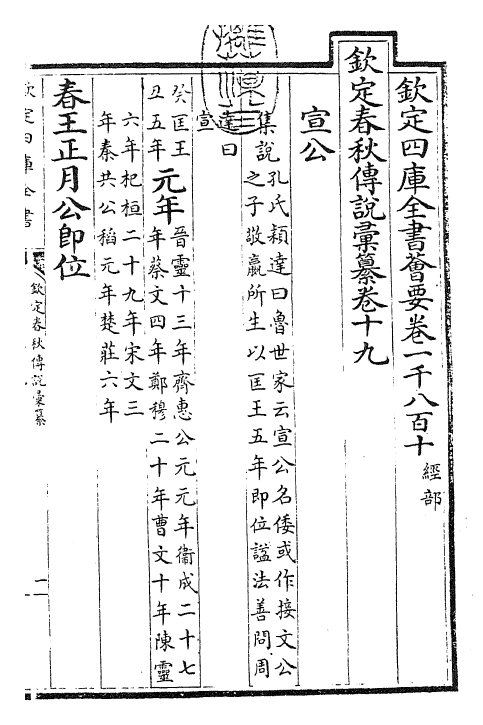 欽定四庫全書薈要卷一千八百十 經部
欽定春秋傳說彙纂卷十九
宣公
集說 孔氏穎達曰魯世家云宣公名倭或作接文公
之子敬嬴所生以匡王五年即位諡法善問周
達曰
宣
癸匡王
丑五年
元年
晉靈十三年齊惠公元元年衛成二十七
年蔡文四年鄭穆二十年曹文十年陳靈
六年杞桓二十九年宋文三
年秦共公稻元年楚莊六年
春王正月公即位
欽定四庫全書
欽定春秋傳說彙纂